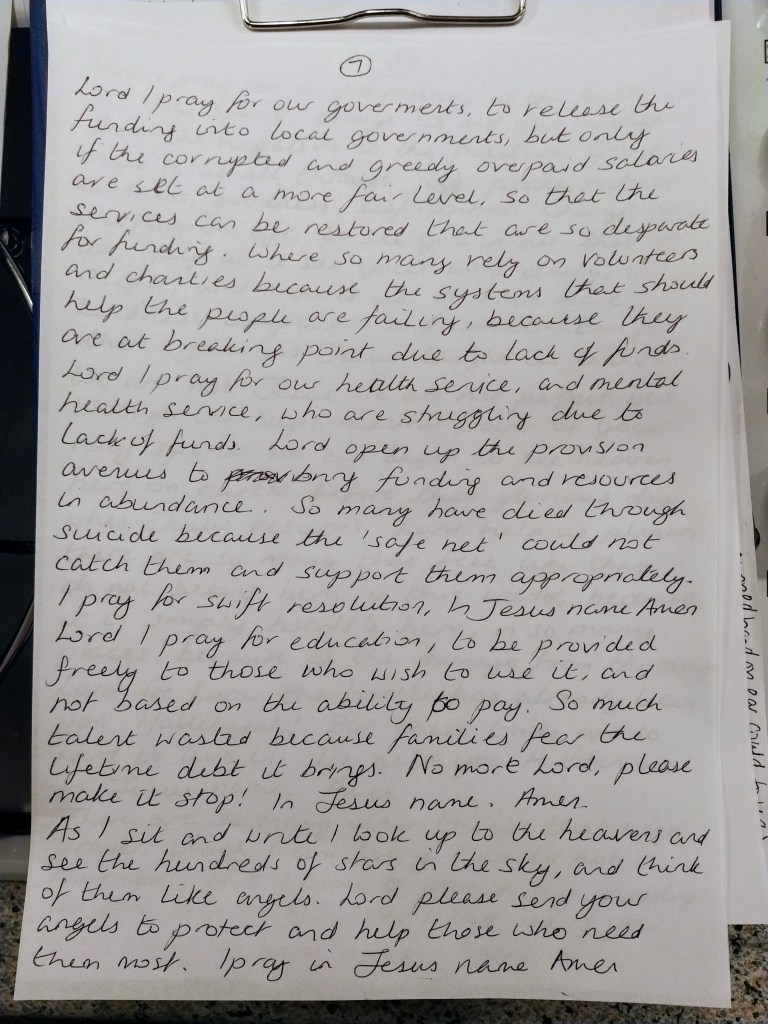 7
Lord I pray for our goverments, to release the
funding into local governments, but only
if the corrupted and greedy overpaid salaries
are set at a more fair level, so that the
services can be restored that are so desparate
for funding. Where so many rely on volunteers
and charities because the systems that should
help the people are failing, because they
are at breaking point due to lack of funds.
Lord I pray for our health service, and mental
health service, who are struggling due to
lack of funds. Lord open up the provision
avenues to bring funding and resources
in abundance. So many have died through
suicide because the 'safe net' could not
catch them and support them appropriately.
I pray for swift resolution, In Jesus name Amen
Lord I pray for education, to be provided
freely to those who wish to use it, and
not based on the ability to pay. So much
talent wasted because families fear the
lifetime debt it brings. No more Lord, please
make it stop! In Jesus name. Amen.
As I sit and write I look up to the heavens and
see the hundreds of stars in the sky, and think
of them like angels. Lord please send your
angels to protect and help those who need
them most. I pray in Jesus name Amen